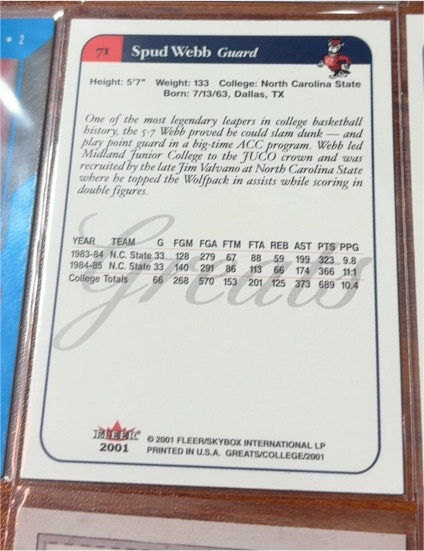 2
71 Spud Webb Guard
Height: 5'7" Weight: 133 College: North Carolina State
Born: 7/13/63, Dallas, TX
One of the most legendary leapers in college basketball
history, the 5-7 Webb proved he could slam dunk — and
play point guard in a big-time ACC program. Webb led
Midland Junior College to the JUCO crown and was
recruited by the late Jim Valvano at North Carolina State
where he topped the Wolfpack in assists while scoring in
double figures.
Greats
YEAR TEAM G FGM FGA FTM FTA REB AST PTS PPG
1983-84 N.C. State 33 128 279 67 88 59 199 323 9.8
1984-85 N.C. State 33 140 291 86 113 66 174 366 11.1
College Totals 66 268 570 153 201 125 373 689 10.4
FLEER
2001
© 2001 FLEER/SKYBOX INTERNATIONAL LP
PRINTED IN U.S.A. GREATS/COLLEGE/2001